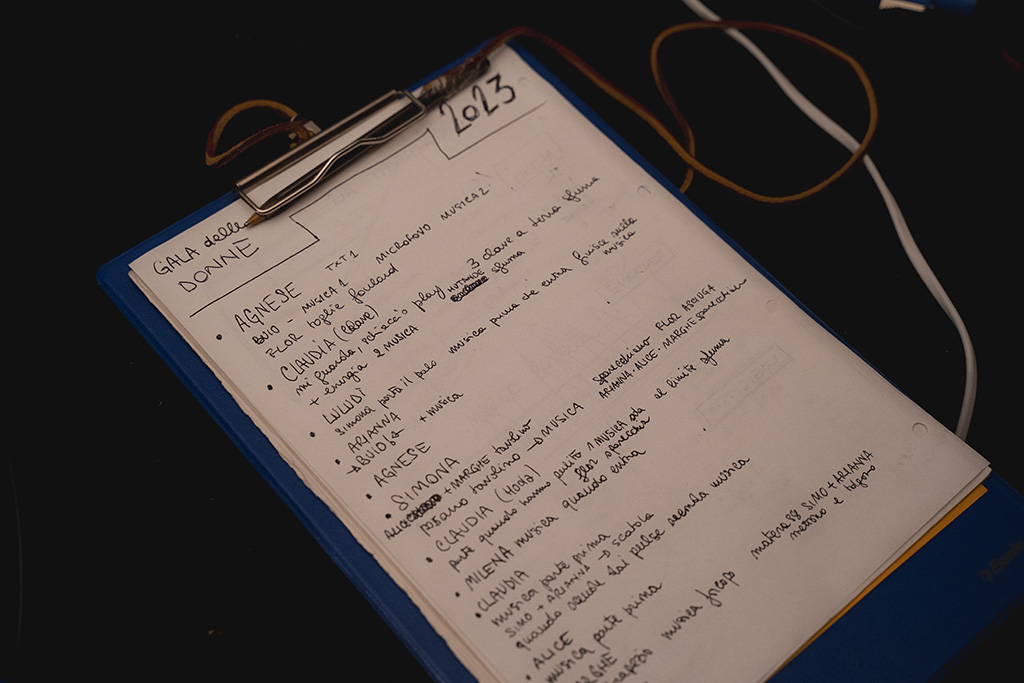 2023
GALA delle
DONNE
• AGNESE TXT1 MICROFONO MUSICA 2
BUIO - MUSICA 1
FLOR toglie foulard
• CLAUDIA (Clave) 3 clave a terra sfuma
mi guarda, schiaccio play sfuma
+ energia 2 MUSICA
• LULUDÌ
Simona porta il palo musica prima di entra finisce sulla musica
• ARIANNA
→ BUIO + musica
• AGNESE
• SIMONA
ALICE + MARGHE tavolino
posano tavolino → MUSICA sparecchiano FLOR ASCIUGA
ARIANNA-ALICE-MARGHE sparecchiano
• CLAUDIA
parte quando hanno pulito 1 MUSICA al limite sfuma
• MILENA musica quando entra
• CLAUDIA
musica parte prima
SIMO + ARIANNA → scatola
quando musica
• ALICE
musica parte prima
MARGHE musica materassi SIMO + ARIANNA
mettono e tolgono